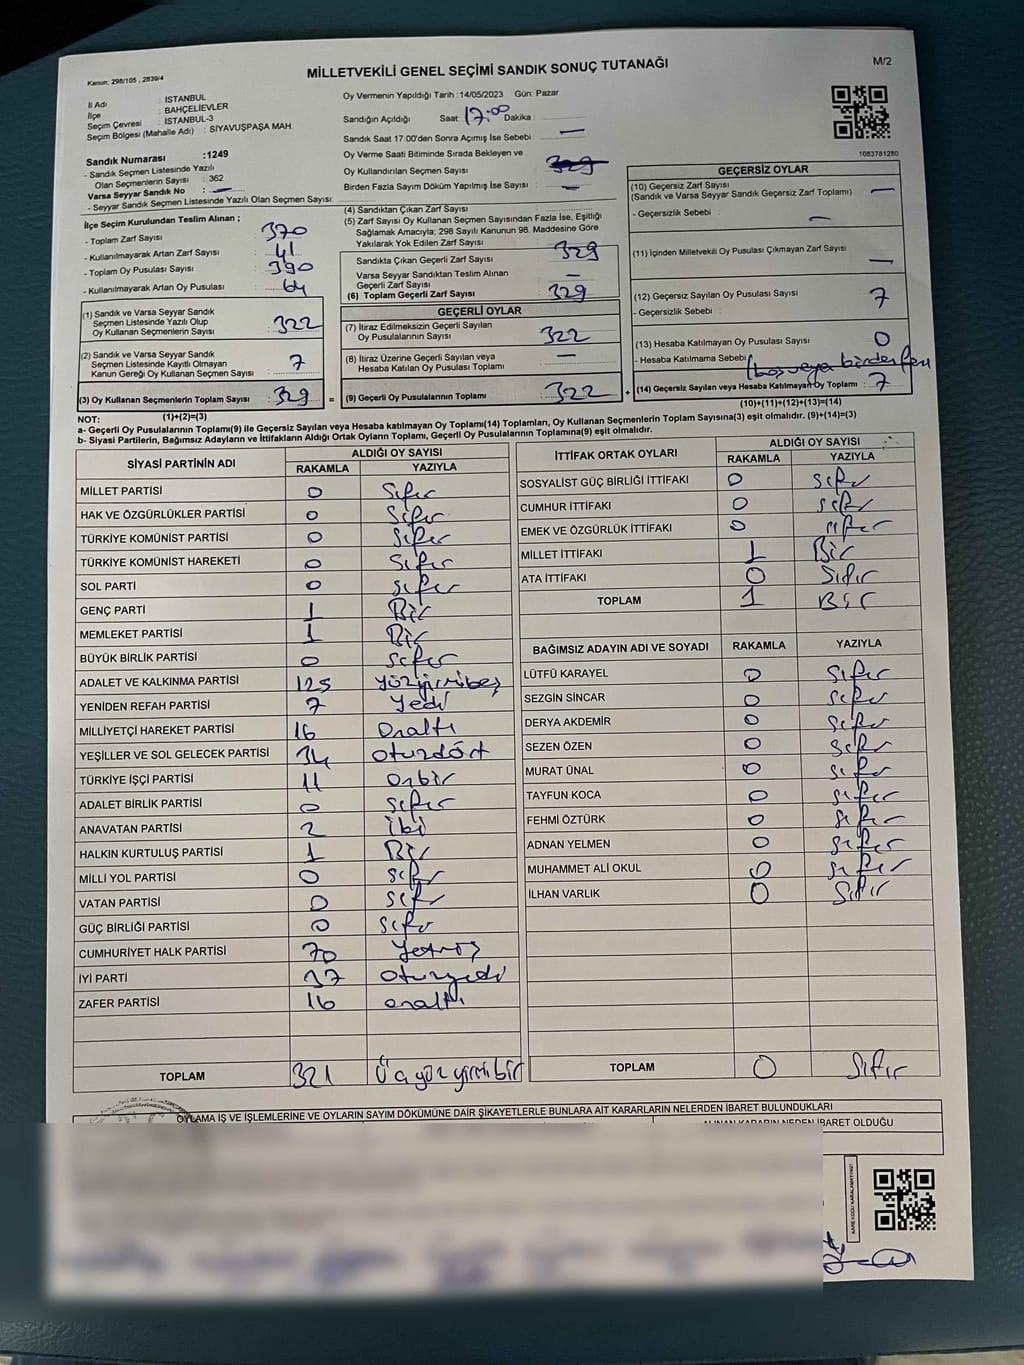 MİLLETVEKİLİ GENEL SEÇİMİ SANDIK SONUÇ TUTANAĞI
M/2
Kanun: 298/105 , 2839/4
İl Adı : İSTANBUL
İlçe : BAHÇELİEVLER
Seçim Çevresi : İSTANBUL-3
Seçim Bölgesi (Mahalle Adı) : SİYAVUŞPAŞA MAH.
Oy Vermenin Yapıldığı Tarih :14/05/2023 Gün: Pazar
Sandığın Açıldığı Saat: 17:00 Dakika :
Sandık Saat 17.00'den Sonra Açımış İse Sebebi : —
Sandık Numarası :1249
- Sandık Seçmen Listesinde Yazılı
Olan Seçmenlerin Sayısı : 362
Varsa Seyyar Sandık No : —
- Seyyar Sandık Seçmen Listesinde Yazılı Olan Seçmen Sayısı:
Oy Verme Saati Bitiminde Sırada Bekleyen ve
Oy Kullandırılan Seçmen Sayısı : 329
Birden Fazla Sayım Döküm Yapılmış İse Sayısı : —
1083781280
İlçe Seçim Kurulundan Teslim Alınan ;
- Toplam Zarf Sayısı : 370
- Kullanılmayarak Artan Zarf Sayısı : 41
- Toplam Oy Pusulası Sayısı : 390
- Kullanılmayarak Artan Oy Pusulası : 64
(1) Sandık ve Varsa Seyyar Sandık
Seçmen Listesinde Yazılı Olup
Oy Kullanan Seçmenlerin Sayısı : 322
(2) Sandık ve Varsa Seyyar Sandık
Seçmen Listesinde Kayıtlı Olmayan
Kanun Gereği Oy Kullanan Seçmen Sayısı : 7
(3) Oy Kullanan Seçmenlerin Toplam Sayısı : 329 =
(1)+(2)=(3)
(4) Sandıktan Çıkan Zarf Sayısı
(5) Zarf Sayısı Oy Kullanan Seçmen Sayısından Fazla İse, Eşitliği
Sağlamak Amacıyla; 298 Sayılı Kanunun 98. Maddesine Göre
Yakılarak Yok Edilen Zarf Sayısı :
Sandıkta Çıkan Geçerli Zarf Sayısı : 329
Varsa Seyyar Sandıktan Teslim Alınan
Geçerli Zarf Sayısı : —
(6) Toplam Geçerli Zarf Sayısı : 329
GEÇERLİ OYLAR
(7) İtiraz Edilmeksizin Geçerli Sayılan
Oy Pusulalarının Sayısı : 322
(8) İtiraz Üzerine Geçerli Sayılan veya
Hesaba Katılan Oy Pusulası Toplamı : —
(9) Geçerli Oy Pusulalarının Toplamı : 322 +
GEÇERSİZ OYLAR
(10) Geçersiz Zarf Sayısı
(Sandık ve Varsa Seyyar Sandık Geçersiz Zarf Toplamı) : —
- Geçersizlik Sebebi : —
(11) İçinden Milletvekili Oy Pusulası Çıkmayan Zarf Sayısı : —
(12) Geçersiz Sayılan Oy Pusulası Sayısı : 7
- Geçersizlik Sebebi :
(13) Hesaba Katılmayan Oy Pusulası Sayısı : 0
- Hesaba Katılmama Sebebi (boş veya birden fazla
(14) Geçersiz Sayılan veya Hesaba Katılmayan Oy Toplamı : 7
(10)+(11)+(12)+(13)=(14)
NOT:
a- Geçerli Oy Pusulalarının Toplamı(9) ile Geçersiz Sayılan veya Hesaba katılmayan Oy Toplamı(14) Toplamları, Oy Kullanan Seçmenlerin Toplam Sayısına(3) eşit olmalıdır. (9)+(14)=(3)
b- Siyasi Partilerin, Bağımsız Adayların ve İttifakların Aldığı Ortak Oyların Toplamı, Geçerli Oy Pusulalarının Toplamına(9) eşit olmalıdır.
SİYASİ PARTİNİN ADI ALDIĞI OY SAYISI
RAKAMLA YAZIYLA
MİLLET PARTİSİ 0 Sıfır
HAK VE ÖZGÜRLÜKLER PARTİSİ 0 Sıfır
TÜRKİYE KOMÜNİST PARTİSİ 0 Sıfır
TÜRKİYE KOMÜNİST HAREKETİ 0 Sıfır
SOL PARTİ 0 sıfır
GENÇ PARTİ 1 Bir
MEMLEKET PARTİSİ 1 Bir
BÜYÜK BİRLİK PARTİSİ 0 sıfır
ADALET VE KALKINMA PARTİSİ 125 yüzyirmibeş
YENİDEN REFAH PARTİSİ 7 Yedi
MİLLİYETÇİ HAREKET PARTİSİ 16 Onaltı
YEŞİLLER VE SOL GELECEK PARTİSİ 34 otuzdört
TÜRKİYE İŞÇİ PARTİSİ 11 onbir
ADALET BİRLİK PARTİSİ 0 sıfır
ANAVATAN PARTİSİ 2 iki
HALKIN KURTULUŞ PARTİSİ 1 Bir
MİLLİ YOL PARTİSİ 0 sıfır
VATAN PARTİSİ 0 sıfır
GÜÇ BİRLİĞİ PARTİSİ 0 sıfır
CUMHURİYET HALK PARTİSİ 70 Yetmiş
İYİ PARTİ 37 otuzyedi
ZAFER PARTİSİ 16 onaltı
TOPLAM 321 Üçyüzyirmibir
İTTİFAK ORTAK OYLARI ALDIĞI OY SAYISI
RAKAMLA YAZIYLA
SOSYALİST GÜÇ BİRLİĞİ İTTİFAKI 0 sıfır
CUMHUR İTTİFAKI 0 sıfır
EMEK VE ÖZGÜRLÜK İTTİFAKI 0 sıfır
MİLLET İTTİFAKI 1 Bir
ATA İTTİFAKI 0 Sıfır
TOPLAM 1 Bir
BAĞIMSIZ ADAYIN ADI VE SOYADI RAKAMLA YAZIYLA
LÜTFÜ KARAYEL 0 Sıfır
SEZGİN SİNCAR 0 sıfır
DERYA AKDEMİR 0 sıfır
SEZEN ÖZEN 0 sıfır
MURAT ÜNAL 0 sıfır
TAYFUN KOCA 0 sıfır
FEHMİ ÖZTÜRK 0 sıfır
ADNAN YELMEN 0 sıfır
MUHAMMET ALİ OKUL 0 sıfır
İLHAN VARLIK 0 Sıfır
TOPLAM 0 Sıfır
OYLAMA İŞ VE İŞLEMLERİNE VE OYLARIN SAYIM DÖKÜMÜNE DAİR ŞİKAYETLERLE BUNLARA AİT KARARLARIN NELERDEN İBARET BULUNDUKLARI
ALINAN KARARIN NEDEN İBARET OLDUĞU
KARE KODU KARALAMAYINIZ!